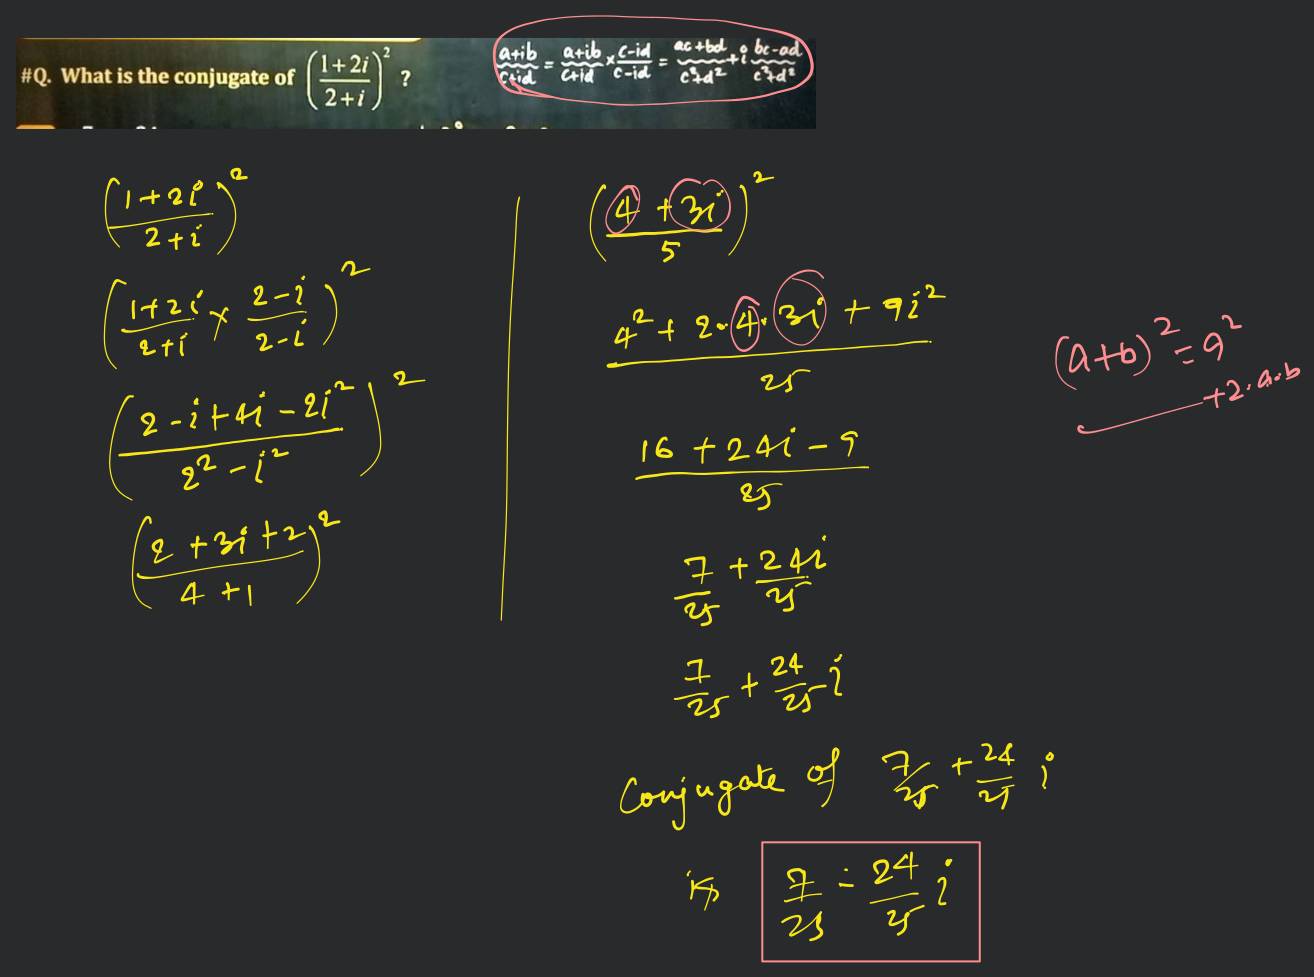 #Q. What is the conjugate of ((1+2i)/(2+i))^2 ?
(a+ib)/(c+id) = (a+ib)/(c+id) × (c-id)/(c-id) = (ac+bd)/(c²+d²) + i (bc-ad)/(c²+d²)
((1+2i)/(2+i))^2
((1+2i)/(2+i) × (2-i)/(2-i))^2
((2-i+4i-2i²)/(2²-i²))^2
((2+3i+2)/(4+1))^2
((4+3i)/5)^2
(4²+2·4·3i+9i²)/25
(16+24i-9)/25
7/25 + 24i/25
7/25 + 24/25 i
Conjugate of 7/25 + 24/25 i
is 7/25 - 24/25 i
(a+b)² = a²
+2·a·b